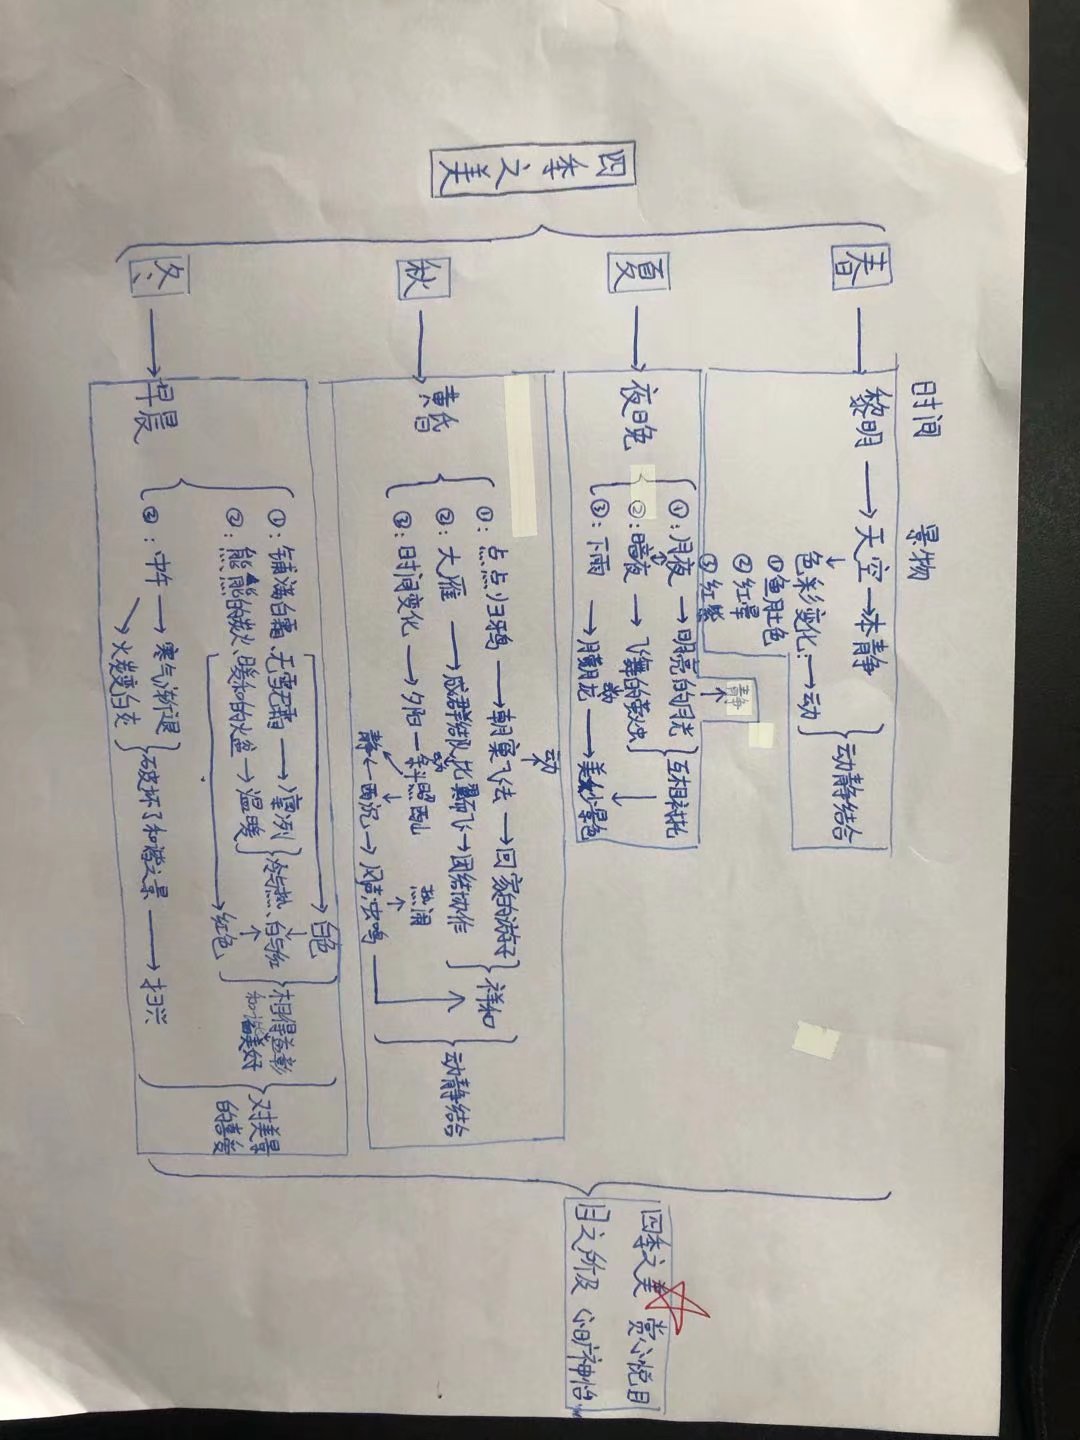 四季之美
时间 景物
春
黎明
天空
本静
色彩变化:
动
①鱼肚色
②红晕
③红紫
动静结合
夏
夜晚
①:月夜
明亮的月光
静
②:暗夜
飞舞的萤火虫
动
互相衬托
③:下雨
朦胧
美妙景色
秋
黄昏
①:点点归鸦
朝窠飞去
动
回家的游子
②:大雁
成群结队比翼而飞
动
团结协作
祥和
③:时间变化
夕阳
斜照
静
西沉
风声,虫鸣
热闹
动静结合
冬
早晨
①:铺满白霜、无雪无霜
凛冽
白色
②:熊熊的炭火、暖和的火盆
温暖
红色
冷与热、白与红
相得益彰
和谐美好
③:中午
寒气渐退
火炭变白灰
破坏了和谐之景
扫兴
对美景
的喜爱
四季之美 赏心悦目
目之所及 心旷神怡